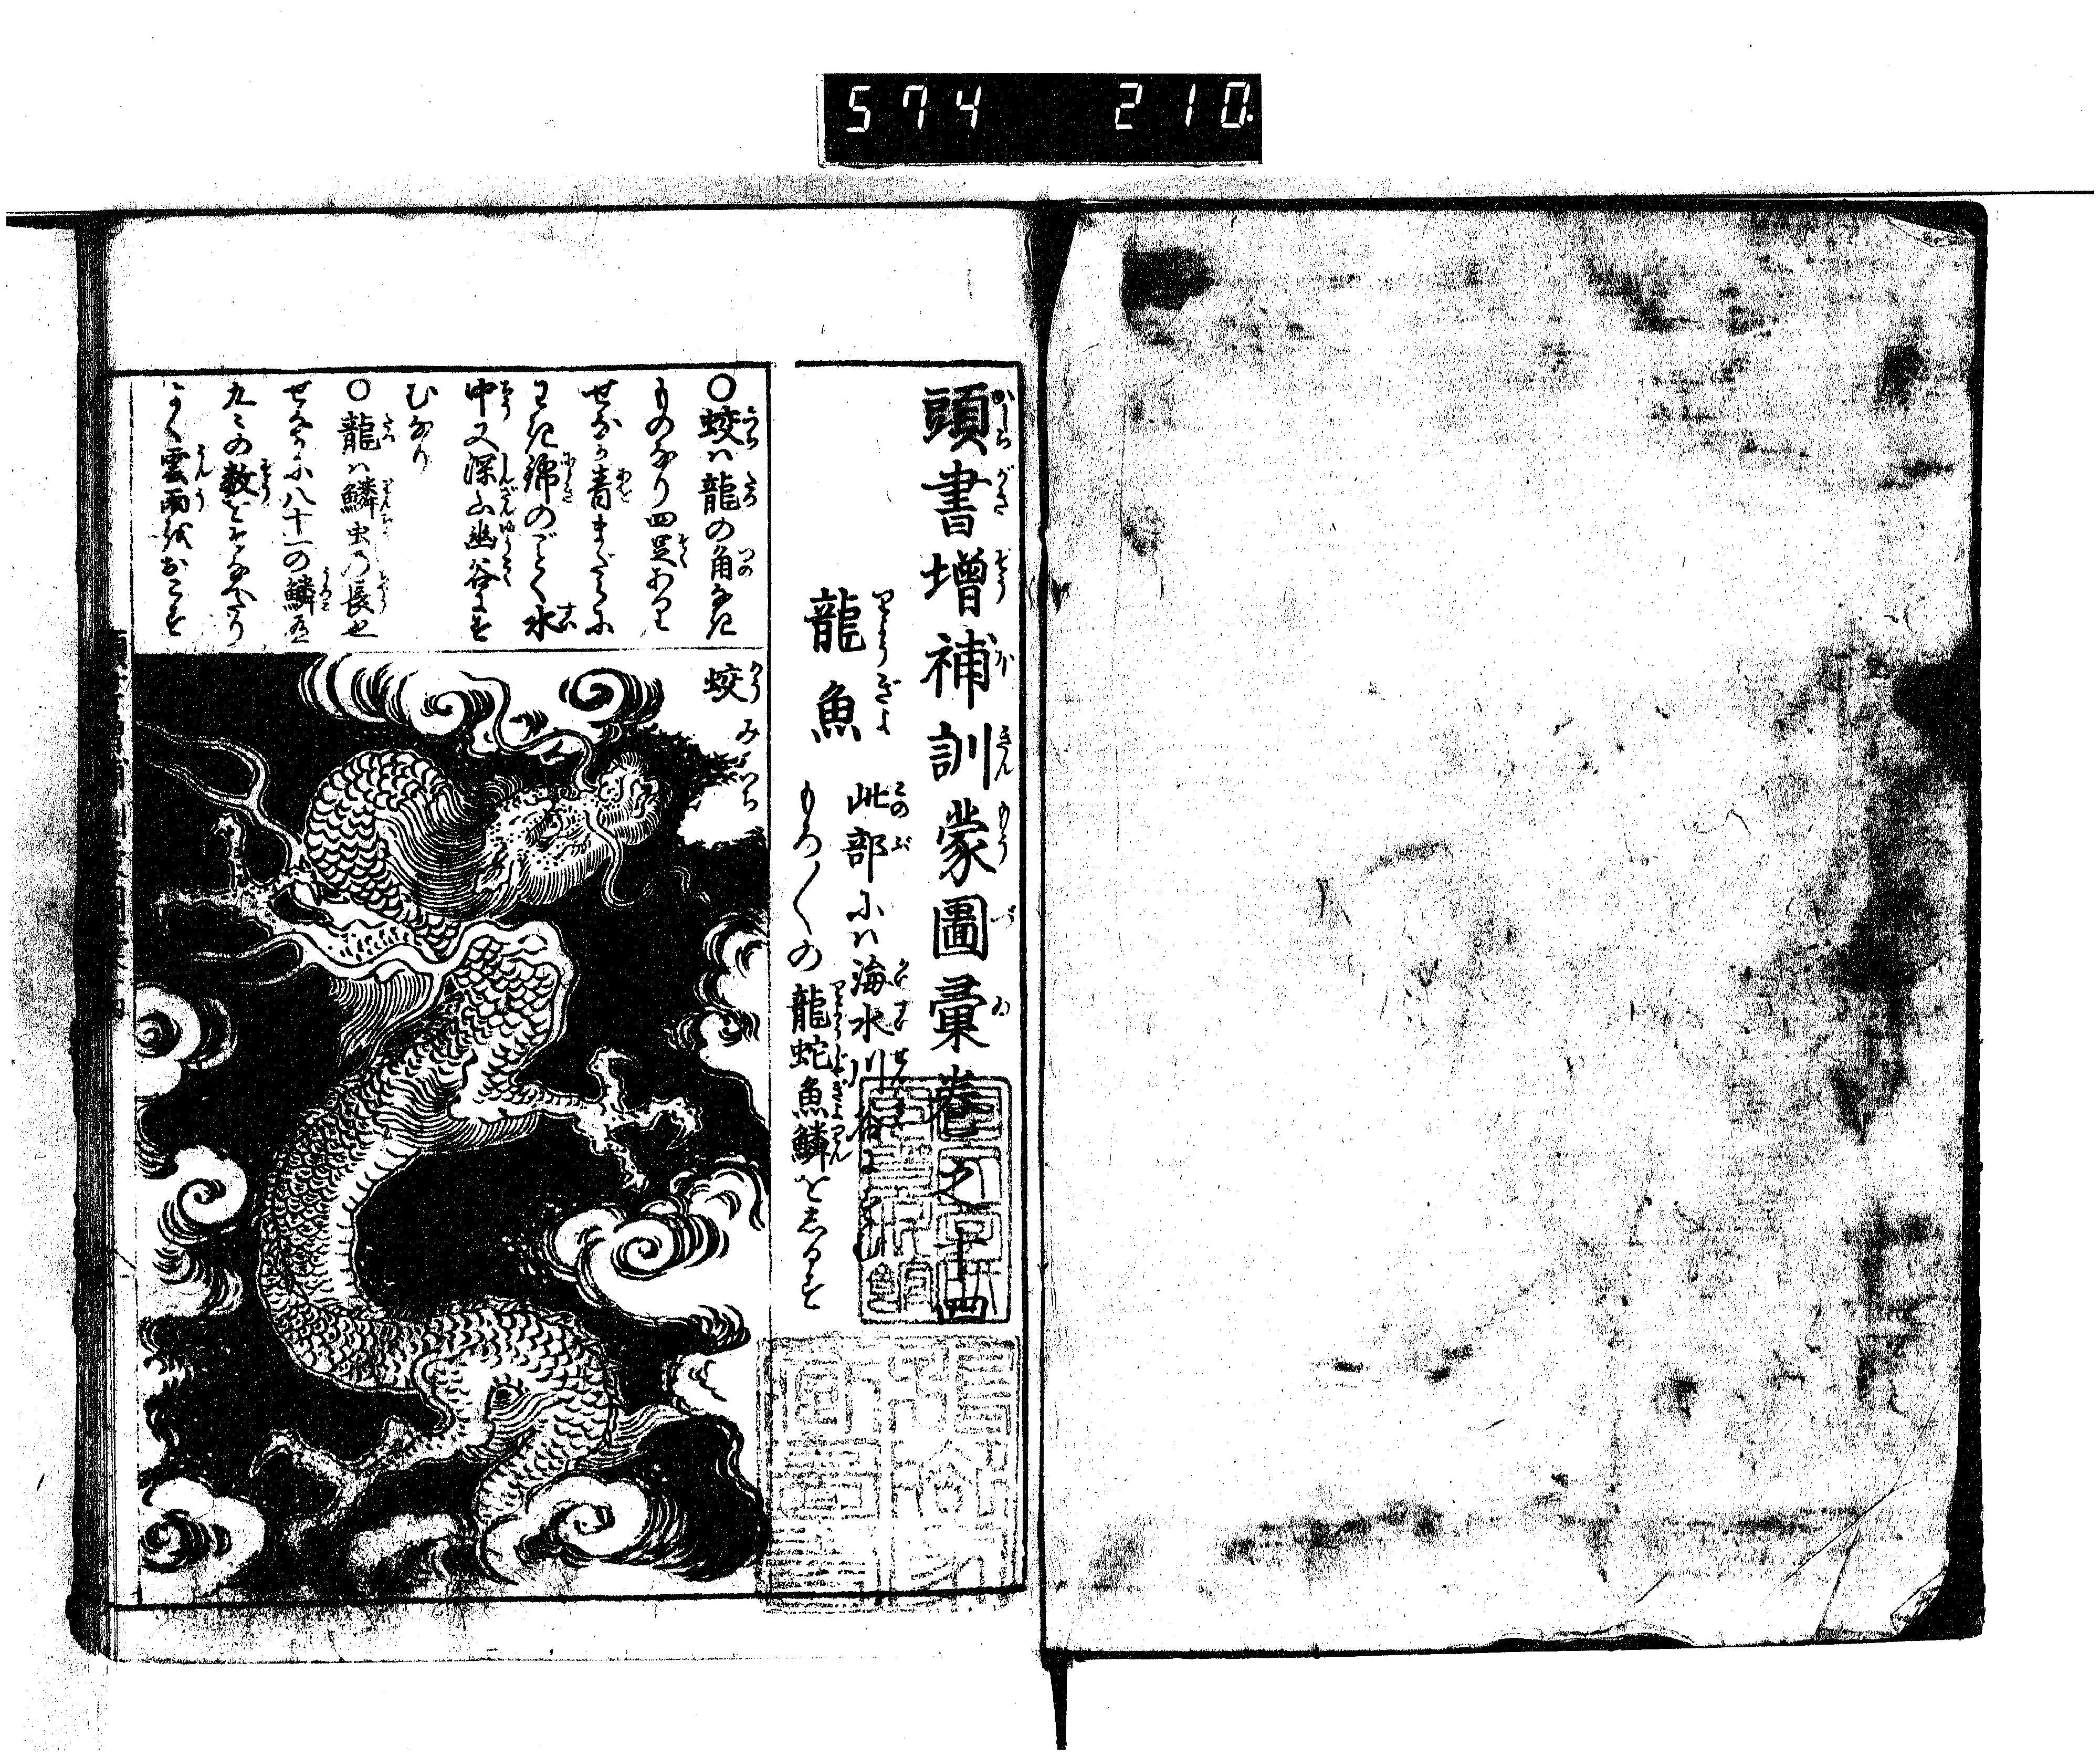 574 210
頭書増補訓蒙圖彙卷之十四
龍魚
此部にハ海水川
もろ〳〵の龍蛇魚鱗をしるす
〇蛟ハ龍の角なき
ものなり四足ありて
せなか青まだらに
わき錦のごとく水
中又深山幽谷にす
むなり
〇龍ハ鱗虫の長也
せなかに八十一の鱗有
九々の数をそなへたり
よく雲雨をおこす
蛟 みづち